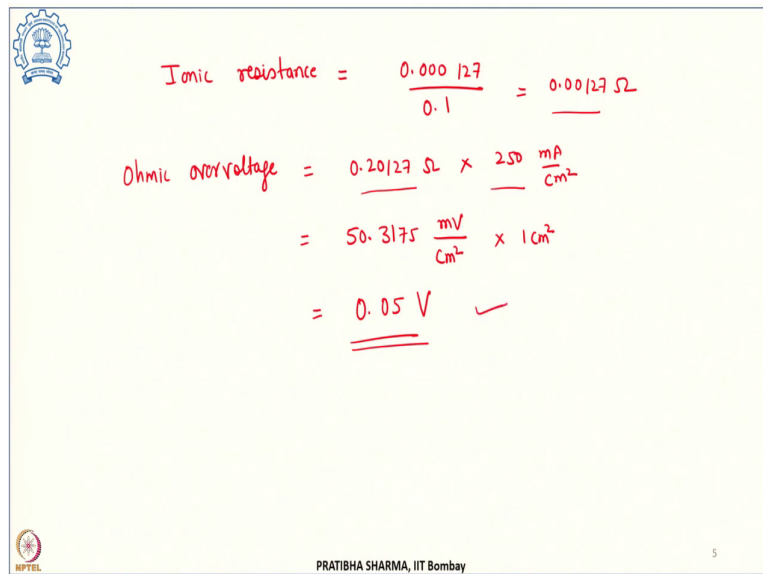 Ionic resistance = 0.000127 / 0.1 = 0.00127 Ω
Ohmic overvoltage = 0.20127 Ω × 250 mA/cm²
= 50.3175 mV/cm² × 1 cm²
= 0.05 V ✓
NPTEL
PRATIBHA SHARMA, IIT Bombay
5